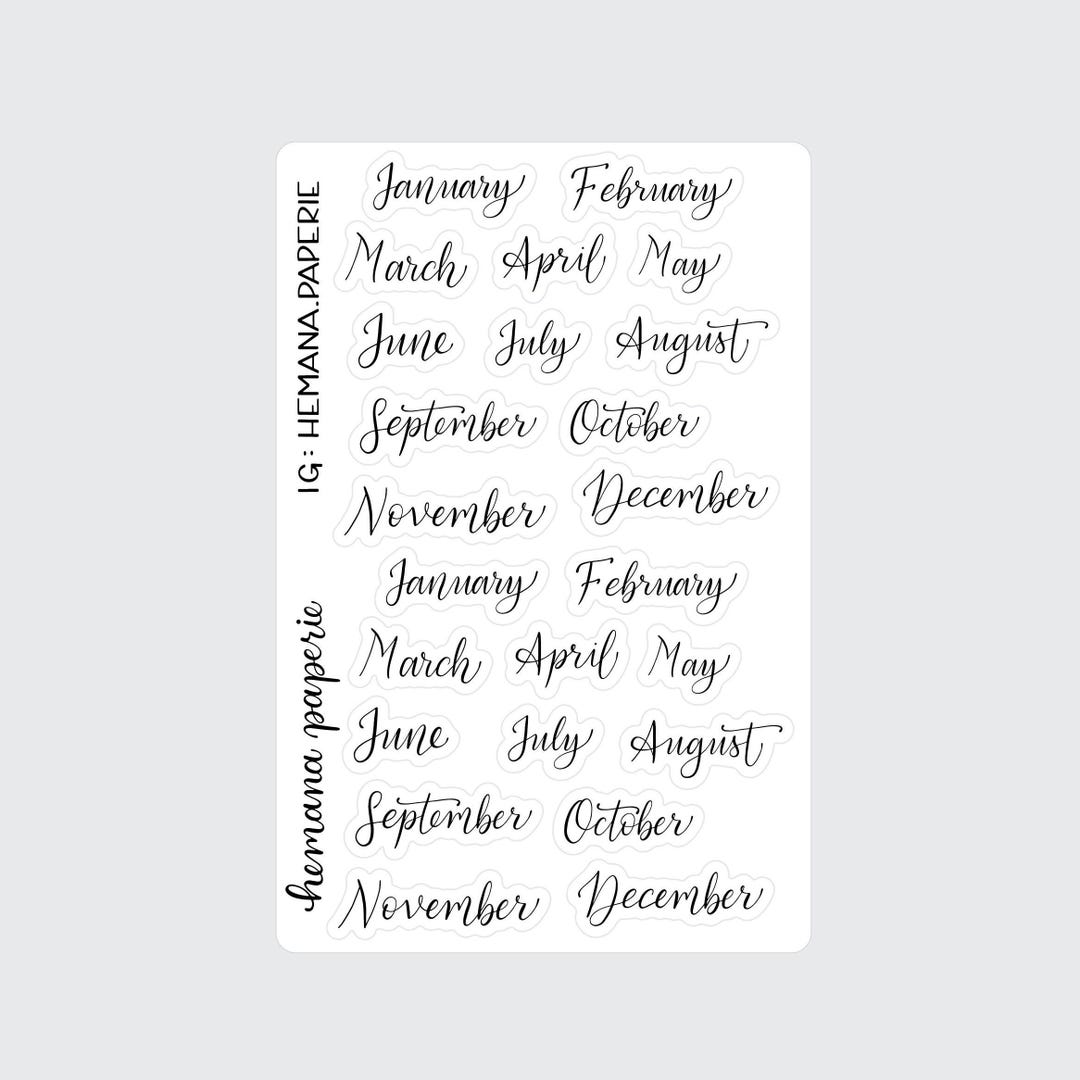 IG: HEMANA.PAPERIE
hemana paperie
January February
March April May
June July August
September October
November December
January February
March April May
June July August
September October
November December